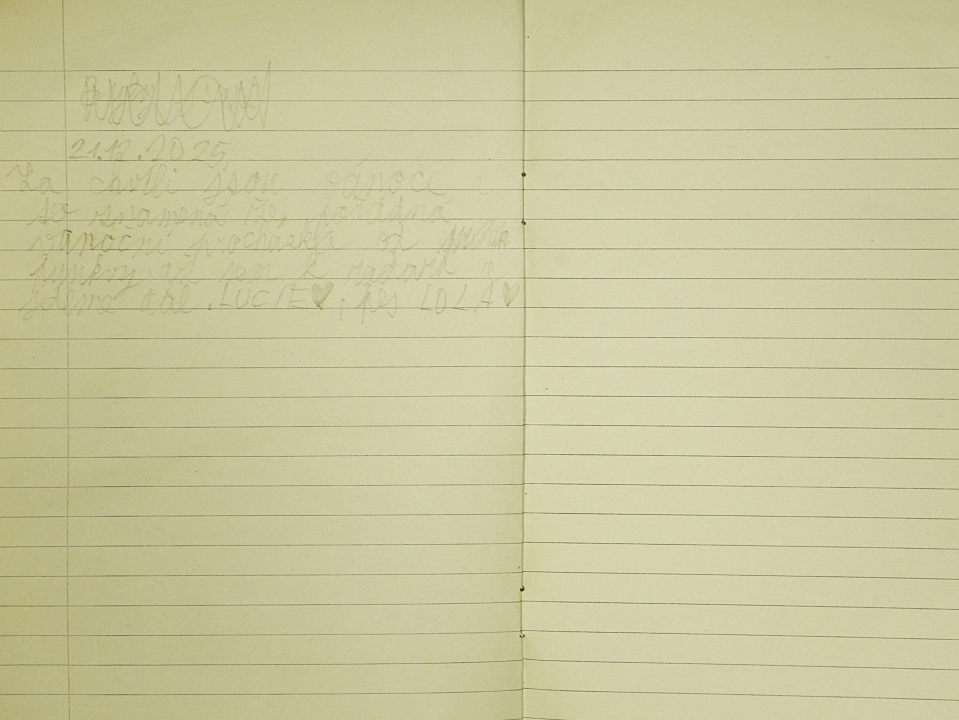 21.12.2025
Za chvíli jsou vánoce a
to znamená že pořádná
vánoční procházka od
šunkvy až sem k radaru a
jdeme dál. LUCIE♥, pes LOLA♥